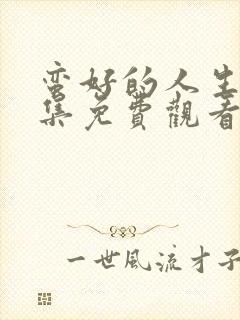 蛮好的人生
集免費觀看
一世風流才子